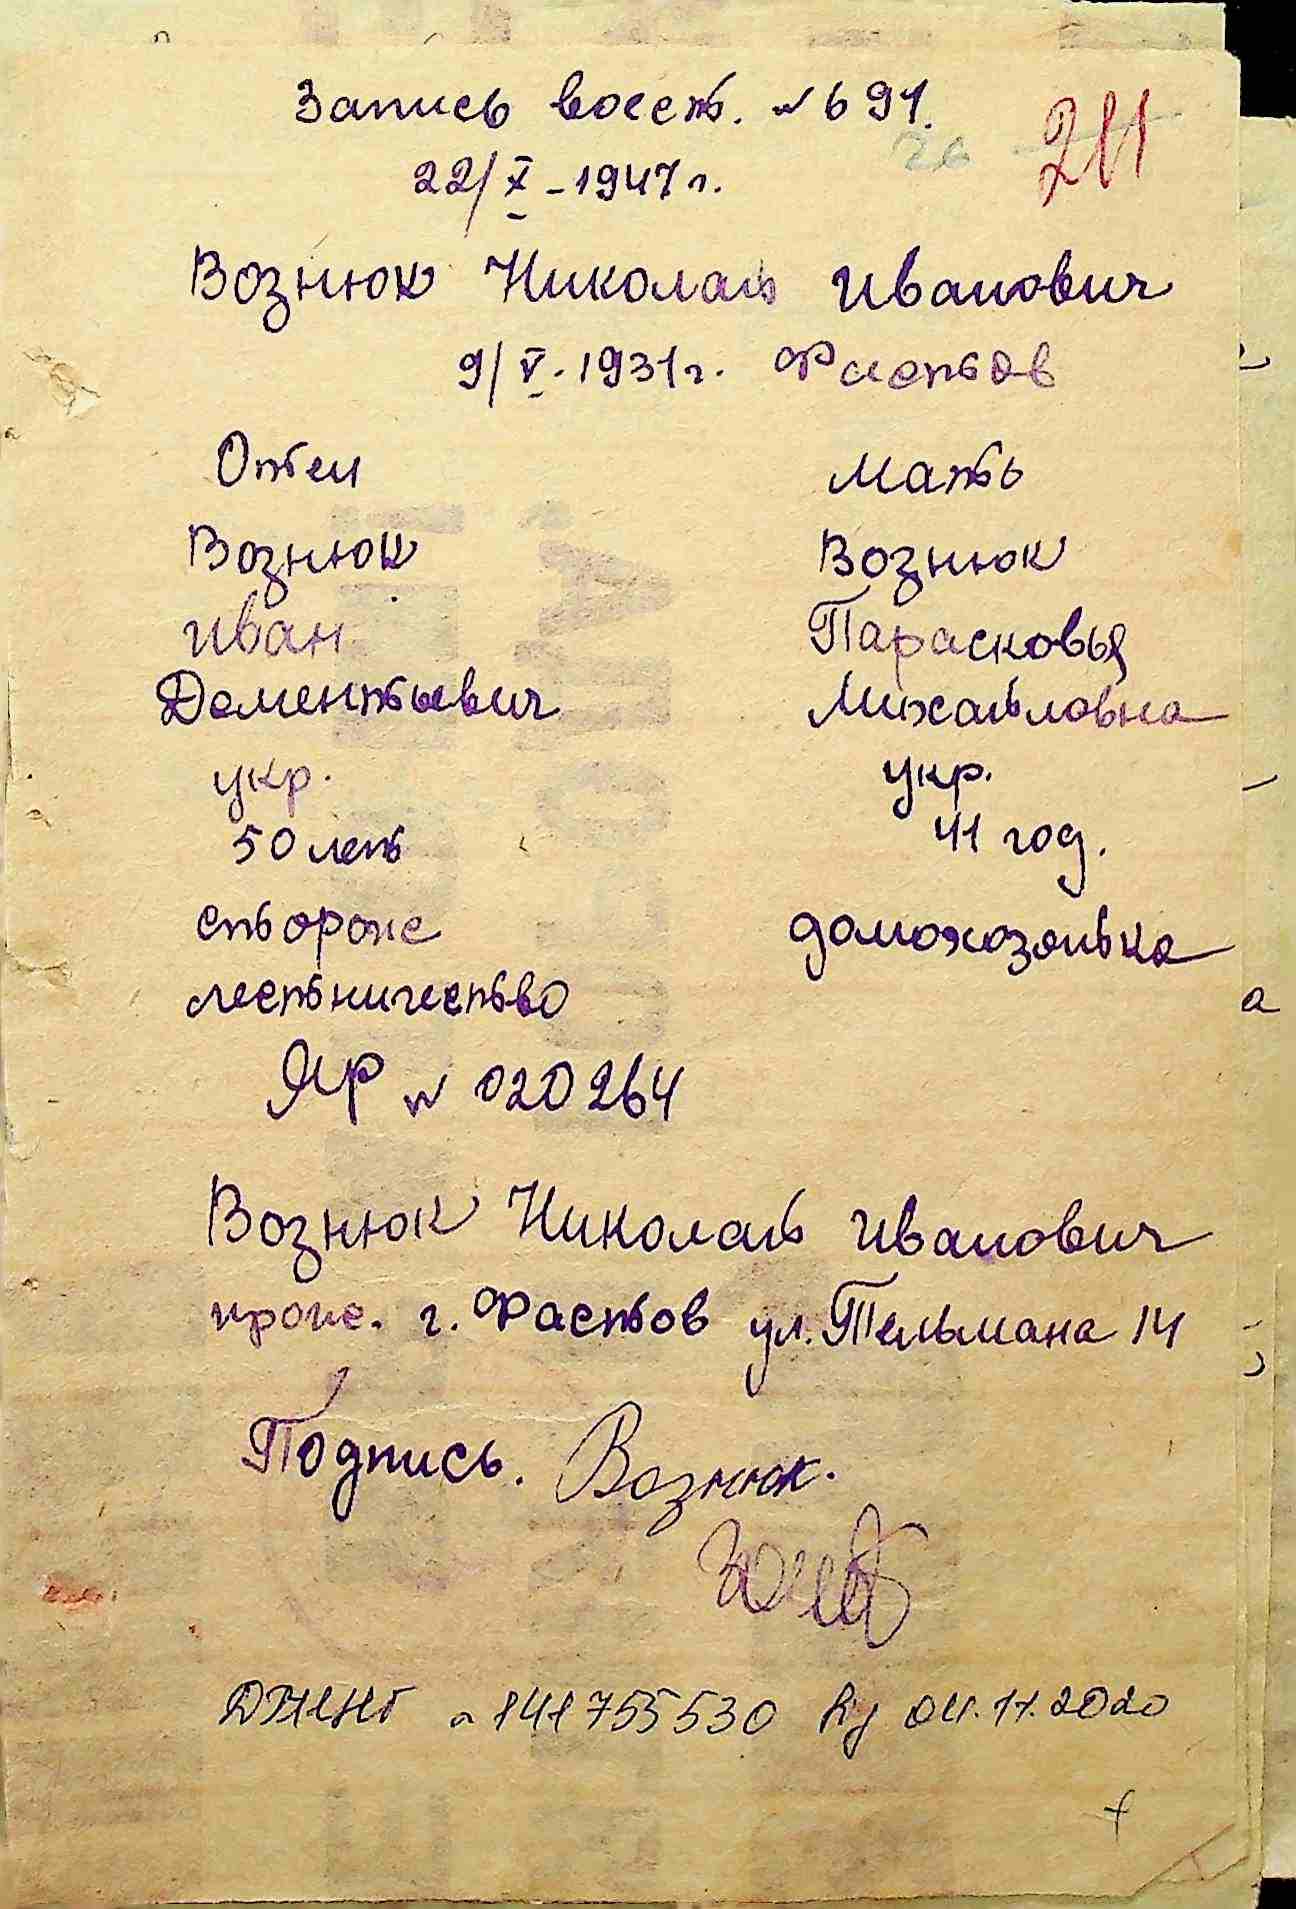 Запись восст. № 691.
26 211
22/X - 1947 г.
Вознюк Николай Иванович
9/V. 1931 г. Фастов
Отец Мать
Вознюк Вознюк
Иван Парасковья
Дементьевич Михайловна
укр. укр.
50 лет 41 год.
сторож домохозяйка
лестничество
ЯР № 020264
Вознюк Николай Иванович
прож. г. Фастов ул. Тельмана 14
Подпись. Вознюк.
№ 141755530 від 04.11.2020